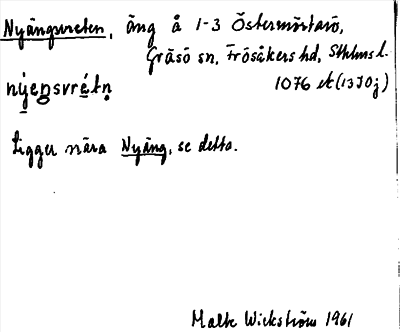 Nyängsvreten, äng å 1-3 Östermörtarö,
Gräsö sn, Frösåkers hd, Sthlms l.
nýeŋsvrétn̥ 1076 et (13I0j)
Ligger nära Nyäng, se detta.
Malte Wickström 1961